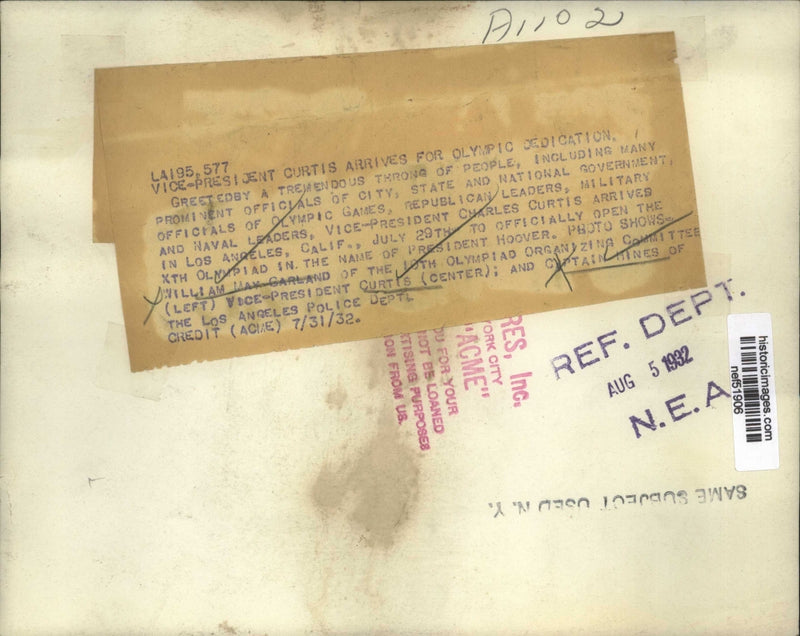 A1102
LA195,577
VICE-PRESIDENT CURTIS ARRIVES FOR OLYMPIC DEDICATION.
GREETEDBY A TREMENDOUS THRONG OF PEOPLE, INCLUDING MANY
PROMINENT OFFICIALS OF CITY, STATE AND NATIONAL GOVERNMENT,
OFFICIALS OF OLYMPIC GAMES, REPUBLICAN LEADERS, MILITARY
AND NAVAL LEADERS, VICE-PRESIDENT CHARLES CURTIS ARRIVES
IN LOS ANGELES, CALIF., JULY 29TH, TO OFFICIALLY OPEN THE
XTH OLYMPIAD IN THE NAME OF PRESIDENT HOOVER. PHOTO SHOWS-
WILLIAM MAY GARLAND OF THE 10TH OLYMPIAD ORGANIZING COMMITTEE
(LEFT) VICE-PRESIDENT CURTIS (CENTER); AND CAPTAIN HINES OF
THE LOS ANGELES POLICE DEPT.
CREDIT (ACME) 7/31/32.
RES, Inc.
YORK CITY
"ACME"
OU FOR YOUR
NOT BE LOANED
RTISING PURPOSES
ION FROM US.
REF. DEPT.
AUG 5 1932
N.E.A.
historicimages.com
nef51906
SAME SUBJECT USED N.Y.